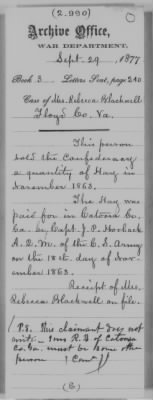 (2.990)
Archive Office,
WAR DEPARTMENT,
Sept. 29, 1877
Book 3 Letters Sent, page 240
Case of Mrs. Rebecca Blackwell
Floyd Co. Va.
This person
sold the Confederacy
a quantity of Hay in
November 1863.
The Hay was
paid for in Catoosa Co.
Ga. by Capt. J. P. Horbach
A. Q. M. of the C. S. Army
on the 18th. day of Nov-
ember 1863.
Receipt of Mrs.
Rebecca Blackwell on file.
(P.S. This claimant does not
write — Mrs R. B of Catoosa
Co. Ga. must be some other
person
(6)